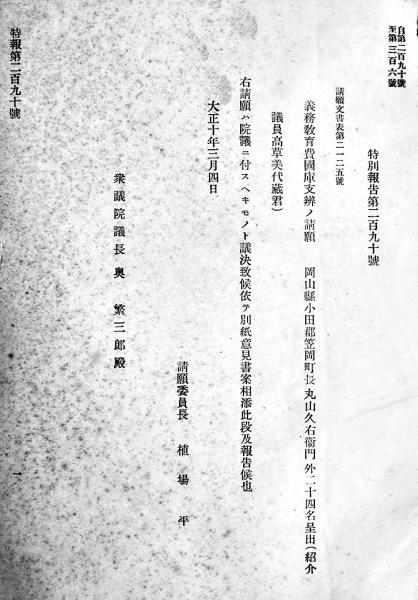 自第二百九十號
至第三百六號
特別報告第二百九十號
請願文書表第二一二五號
義務教育費國庫支辨ノ請願　岡山縣小田郡笠岡町長丸山久右衞門外二十四名呈出(紹介
議員高草美代藏君)
右請願ハ院議ニ付スヘキモノト議決致候依テ別紙意見書案相添此段及報告候也
大正十年三月四日
請願委員長　植場平
衆議院議長奧繁三郎殿
特報第二百九十號
一